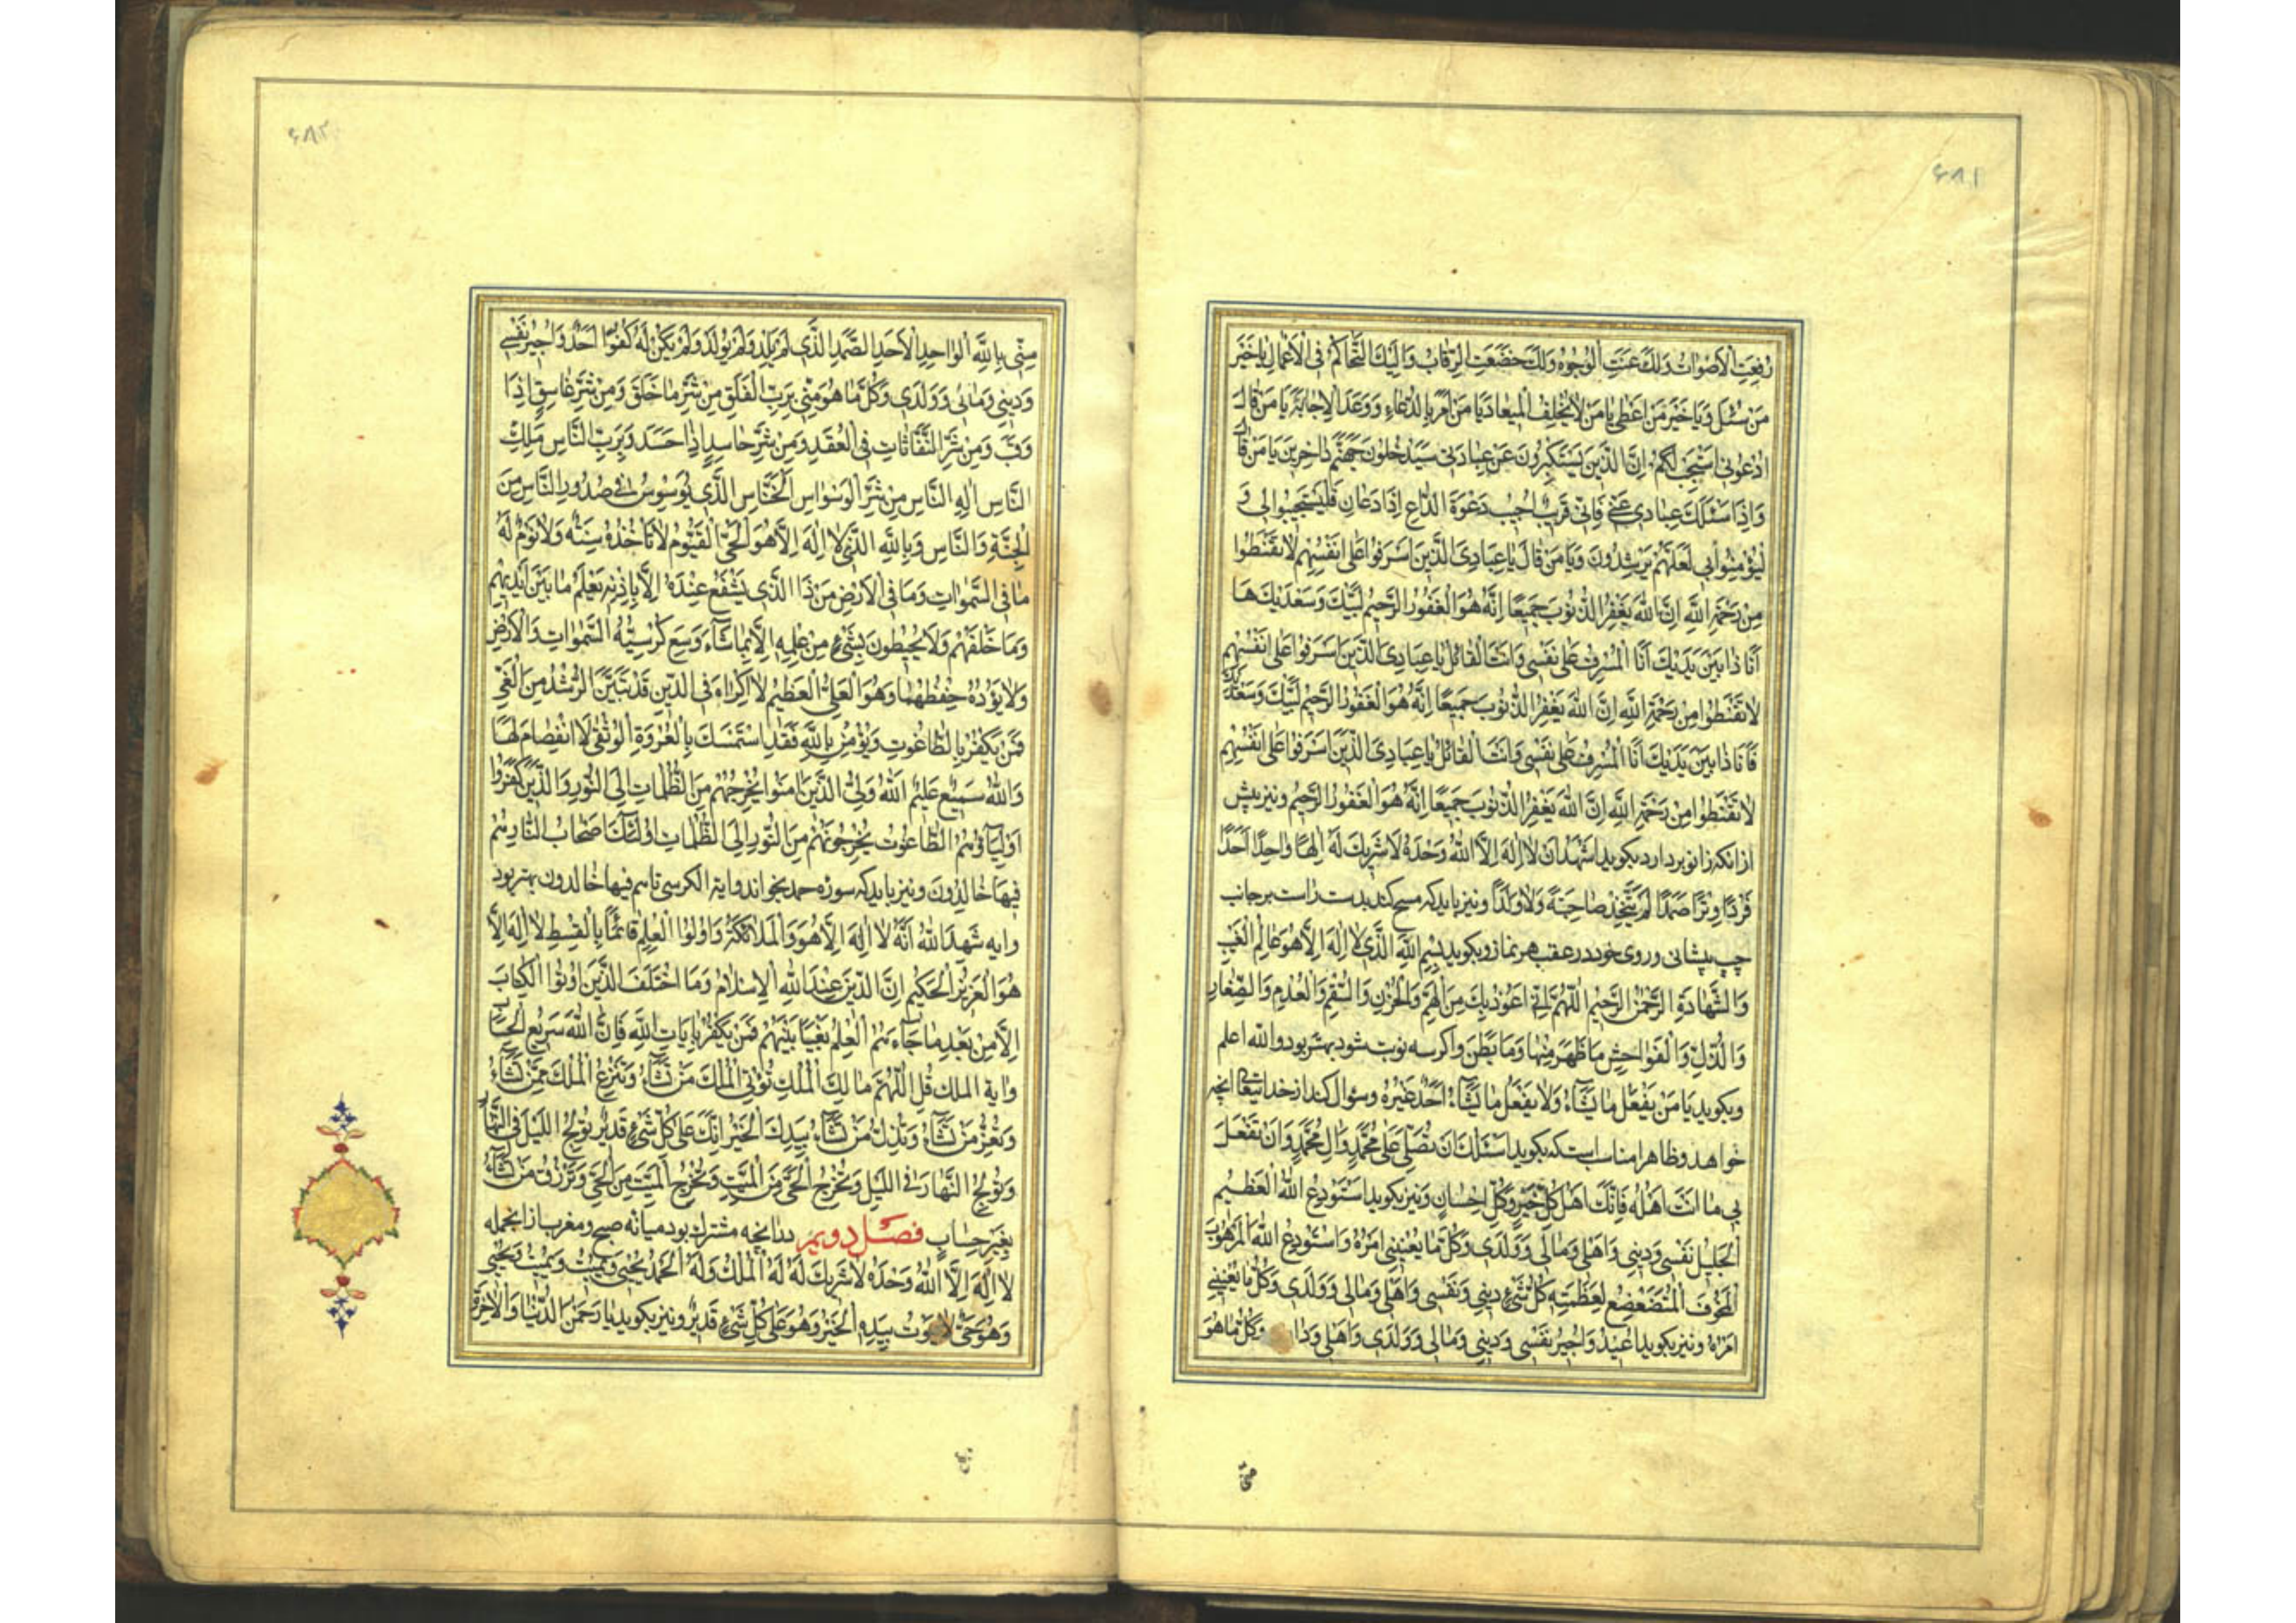 ۶۸۱
رُفِعَتِ الْاَصْواتُ وَلَكَ عَنَتِ الْوُجُوهُ وَلَكَ خَضَعَتِ الرِّقابُ وَاِلَيْكَ التَّحاكُمُ فِى الْاَعْمالِ يا خَيْرَ
مَنْ سُئِلَ وَيا خَيْرَ مَنْ اَعْطى يا مَنْ لا يُخْلِفُ الْميعادَ يا مَنْ اَمَرَ بِالدُّعاءِ وَوَعَدَ الْاِجابَةَ يا مَنْ قالَ
ادْعُونى اَسْتَجِبْ لَكُمْ اِنَّ الَّذينَ يَسْتَكْبِرُونَ عَنْ عِبادَتى سَيَدْخُلُونَ جَهَنَّمَ داخِرينَ يا مَنْ قالَ
وَاِذا سَئَلَكَ عِبادى عَنّى فَاِنّى قَريبٌ اُجيبُ دَعْوَةَ الدّاعِ اِذا دَعانِ فَلْيَسْتَجيبُوا لى وَ
لْيُؤْمِنُوا بى لَعَلَّهُمْ يَرْشُدُونَ وَيا مَنْ قالَ يا عِبادِىَ الَّذينَ اَسْرَفُوا عَلى اَنْفُسِهِمْ لا تَقْنَطُوا
مِنْ رَحْمَةِ اللّهِ اِنَّ اللّهَ يَغْفِرُ الذُّنُوبَ جَميعًا اِنَّهُ هُوَ الْغَفُورُ الرَّحيمُ لَبَّيْكَ وَسَعْدَيْكَ ها
اَنَا ذا بَيْنَ يَدَيْكَ اَنَا الْمُسْرِفُ عَلى نَفْسى وَاَنْتَ الْقائِلُ يا عِبادِىَ الَّذينَ اَسْرَفُوا عَلى اَنْفُسِهِمْ
لا تَقْنَطُوا مِنْ رَحْمَةِ اللّهِ اِنَّ اللّهَ يَغْفِرُ الذُّنُوبَ جَميعًا اِنَّهُ هُوَ الْغَفُورُ الرَّحيمُ لَبَّيْكَ وَسَعْدَيْكَ
ها اَنَا ذا بَيْنَ يَدَيْكَ اَنَا الْمُسْرِفُ عَلى نَفْسى وَاَنْتَ الْقائِلُ يا عِبادِىَ الَّذينَ اَسْرَفُوا عَلى اَنْفُسِهِمْ
لا تَقْنَطُوا مِنْ رَحْمَةِ اللّهِ اِنَّ اللّهَ يَغْفِرُ الذُّنُوبَ جَميعًا اِنَّهُ هُوَ الْغَفُورُ الرَّحيمُ ونيز پيش
ازانكه زانو بردارد بكويد اَشْهَدُ اَنْ لا اِلهَ اِلَّا اللّهُ وَحْدَهُ لا شَريكَ لَهُ اِلهًا واحِدًا اَحَدًا
فَرْدًا وِتْرًا صَمَدًا لَمْ يَتَّخِذْ صاحِبَةً وَلا وَلَدًا ونيز بايد كه مسح كند بدست راست برجانب
چپ پيشانى وروى خود درعقب هر نماز وبكويد بِسْمِ اللّهِ الَّذى لا اِلهَ اِلّا هُوَ عالِمُ الْغَيْبِ
وَالشَّهادَةِ الرَّحْمنُ الرَّحيمُ اَللّهُمَّ اِنّى اَعُوذُ بِكَ مِنَ الْهَمِّ وَالْحُزْنِ وَالسُّقْمِ وَالْعُدْمِ وَالصَّغارِ
وَالذُّلِّ وَالْفَواحِشِ ما ظَهَرَ مِنْها وَما بَطَنَ واكر سه نوبت شود بهتر بود واللّه اعلم
وبكويد يا مَنْ يَفْعَلُ ما يَشاءُ وَلا يَفْعَلُ ما يَشاءُ اَحَدٌ غَيْرُهُ وسؤال كند از خدايتعالى انچه
خواهد وظاهرا مناسب استكه بكويد اَسْئَلُكَ اَنْ تُصَلِّىَ عَلى مُحَمَّدٍ وَالِ مُحَمَّدٍ وَاَنْ تَفْعَلَ
بى ما اَنْتَ اَهْلُهُ فَاِنَّكَ اَهْلُ كُلِّ خَيْرٍ وَكُلِّ اِحْسانٍ ونيز بكويد اَسْتَوْدِعُ اللّهَ الْعَظيمَ
الْجَليلَ نَفْسى وَدينى وَاَهْلى وَمالى وَوَلَدى وَكُلَّ ما يَعْنينى اَمْرُهُ وَاَسْتَوْدِعُ اللّهَ الْمَرْهُوبَ
الْمَخُوفَ الْمُتَضَعْضِعَ لِعَظَمَتِهِ كُلُّ شَىْءٍ دينى وَنَفْسى وَاَهْلى وَمالى وَوَلَدى وَكُلَّ ما يَعْنينى
اَمْرُهُ ونيز بكويد اُعيذُ وَاُجيرُ نَفْسى وَدينى وَمالى وَوَلَدى وَاَهْلى وَدا وَكُلَّ ما هُوَ
منّى
۶۸۲
مِنّى بِاللّهِ الْواحِدِ الْاَحَدِ الصَّمَدِ الَّذى لَمْ يَلِدْ وَلَمْ يُولَدْ وَلَمْ يَكُنْ لَهُ كُفُوًا اَحَدٌ وَاُجيرُ نَفْسى
وَدينى وَمالى وَوَلَدى وَكُلَّ ما هُوَ مِنّى بِرَبِّ الْفَلَقِ مِنْ شَرِّ ما خَلَقَ وَمِنْ شَرِّ غاسِقٍ اِذا
وَقَبَ وَمِنْ شَرِّ النَّفّاثاتِ فِى الْعُقَدِ وَمِنْ شَرِّ حاسِدٍ اِذا حَسَدَ وَبِرَبِّ النّاسِ مَلِكِ
النّاسِ اِلهِ النّاسِ مِنْ شَرِّ الْوَسْواسِ الْخَنّاسِ الَّذى يُوَسْوِسُ فى صُدُورِ النّاسِ مِنَ
الْجِنَّةِ وَالنّاسِ وَبِاللّهِ الَّذى لا اِلهَ اِلّا هُوَ الْحَىُّ الْقَيُّومُ لا تَأْخُذُهُ سِنَةٌ وَلا نَوْمٌ لَهُ
ما فِى السَّمواتِ وَما فِى الْاَرْضِ مَنْ ذَا الَّذى يَشْفَعُ عِنْدَهُ اِلّا بِاِذْنِهِ يَعْلَمُ ما بَيْنَ اَيْديهِمْ
وَما خَلْفَهُمْ وَلا يُحيطُونَ بِشَىْءٍ مِنْ عِلْمِهِ اِلّا بِما شاءَ وَسِعَ كُرْسِيُّهُ السَّمواتِ وَالْاَرْضَ
وَلا يَؤُدُهُ حِفْظُهُما وَهُوَ الْعَلِىُّ الْعَظيمُ لا اِكْراهَ فِى الدّينِ قَدْ تَبَيَّنَ الرُّشْدُ مِنَ الْغَىِّ
فَمَنْ يَكْفُرْ بِالطّاغُوتِ وَيُؤْمِنْ بِاللّهِ فَقَدِ اسْتَمْسَكَ بِالْعُرْوَةِ الْوُثْقى لَا انْفِصامَ لَها
وَاللّهُ سَميعٌ عَليمٌ اَللّهُ وَلِىُّ الَّذينَ امَنُوا يُخْرِجُهُمْ مِنَ الظُّلُماتِ اِلَى النُّورِ وَالَّذينَ كَفَرُوا
اَوْلِياؤُهُمُ الطّاغُوتُ يُخْرِجُونَهُمْ مِنَ النُّورِ اِلَى الظُّلُماتِ اُولئِكَ اَصْحابُ النّارِ هُمْ
فيها خالِدُونَ ونيز بايد كه سوره حمد بخواند واية الكرسى تا هم فيها خالدون بهتر بود
وايه شَهِدَ اللّهُ اَنَّهُ لا اِلهَ اِلّا هُوَ وَالْمَلائِكَةُ وَاُولُوا الْعِلْمِ قائِمًا بِالْقِسْطِ لا اِلهَ اِلّا
هُوَ الْعَزيزُ الْحَكيمُ اِنَّ الدّينَ عِنْدَ اللّهِ الْاِسْلامُ وَمَا اخْتَلَفَ الَّذينَ اُوتُوا الْكِتابَ
اِلّا مِنْ بَعْدِ ما جاءَهُمُ الْعِلْمُ بَغْيًا بَيْنَهُمْ فَمَنْ يَكْفُرْ بِاياتِ اللّهِ فَاِنَّ اللّهَ سَريعُ الْحِسابِ
واية الملك قُلِ اللّهُمَّ مالِكَ الْمُلْكِ تُؤْتِى الْمُلْكَ مَنْ تَشاءُ وَتَنْزِعُ الْمُلْكَ مِمَّنْ تَشاءُ
وَتُعِزُّ مَنْ تَشاءُ وَتُذِلُّ مَنْ تَشاءُ بِيَدِكَ الْخَيْرُ اِنَّكَ عَلى كُلِّ شَىْءٍ قَديرٌ تُولِجُ اللَّيْلَ فِى النَّهارِ
وَتُولِجُ النَّهارَ فِى اللَّيْلِ وَتُخْرِجُ الْحَىَّ مِنَ الْمَيِّتِ وَتُخْرِجُ الْمَيِّتَ مِنَ الْحَىِّ وَتَرْزُقُ مَنْ تَشاءُ
بِغَيْرِ حِسابٍ فصل دويم درانچه مشترك بود ميانه صبح ومغرب ازانجمله
لا اِلهَ اِلَّا اللّهُ وَحْدَهُ لا شَريكَ لَهُ لَهُ الْمُلْكُ وَلَهُ الْحَمْدُ يُحْيى وَيُميتُ وَيُميتُ وَيُحْيى
وَهُوَ حَىٌّ لا يَمُوتُ بِيَدِهِ الْخَيْرُ وَهُوَ عَلى كُلِّ شَىْءٍ قَديرٌ ونيز بكويد يا رَحْمنَ الدُّنْيا وَالْاخِرَةِ